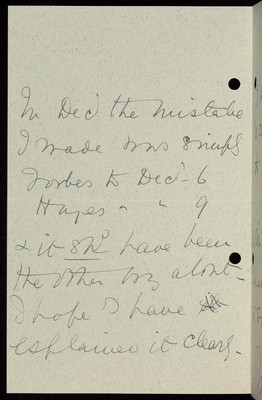 In Dec'd the mistake
I made was simply
Forbes to Dec'd - 6
Hayes " " 9
& it shd have been
the other way about -
I hope I have
explained it clearly -